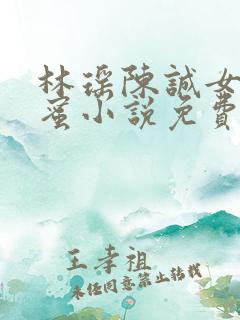 林瑶陳誠女
蜜小説免費
王孝祖
未经同意禁止转载